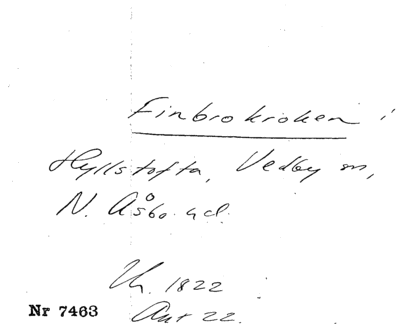 Finbrokroken i
Hyllstofta, Vedby sn,
N. Åsbo hd.
Uh. 1822
Ant 22.
Nr 7463